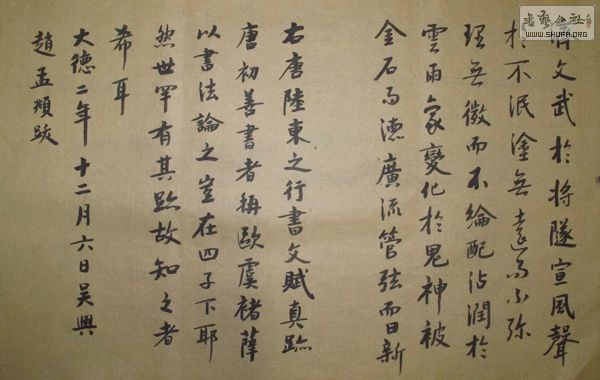 濟文武於将隧宣風聲
於不泯塗無遠而不弥
理無微而不綸配沾潤於
雲雨象變化於鬼神被
金石而德廣流管弦而日新
右唐陸東之行書文賦真跡
唐初善書者稱歐虞褚薛
以書法論之豈在四子下耶
然世罕有其跡故知之者
希耳
大德二年十二月六日吳興
趙孟頫跋
書藝公社
WWW.SHUFA.ORG